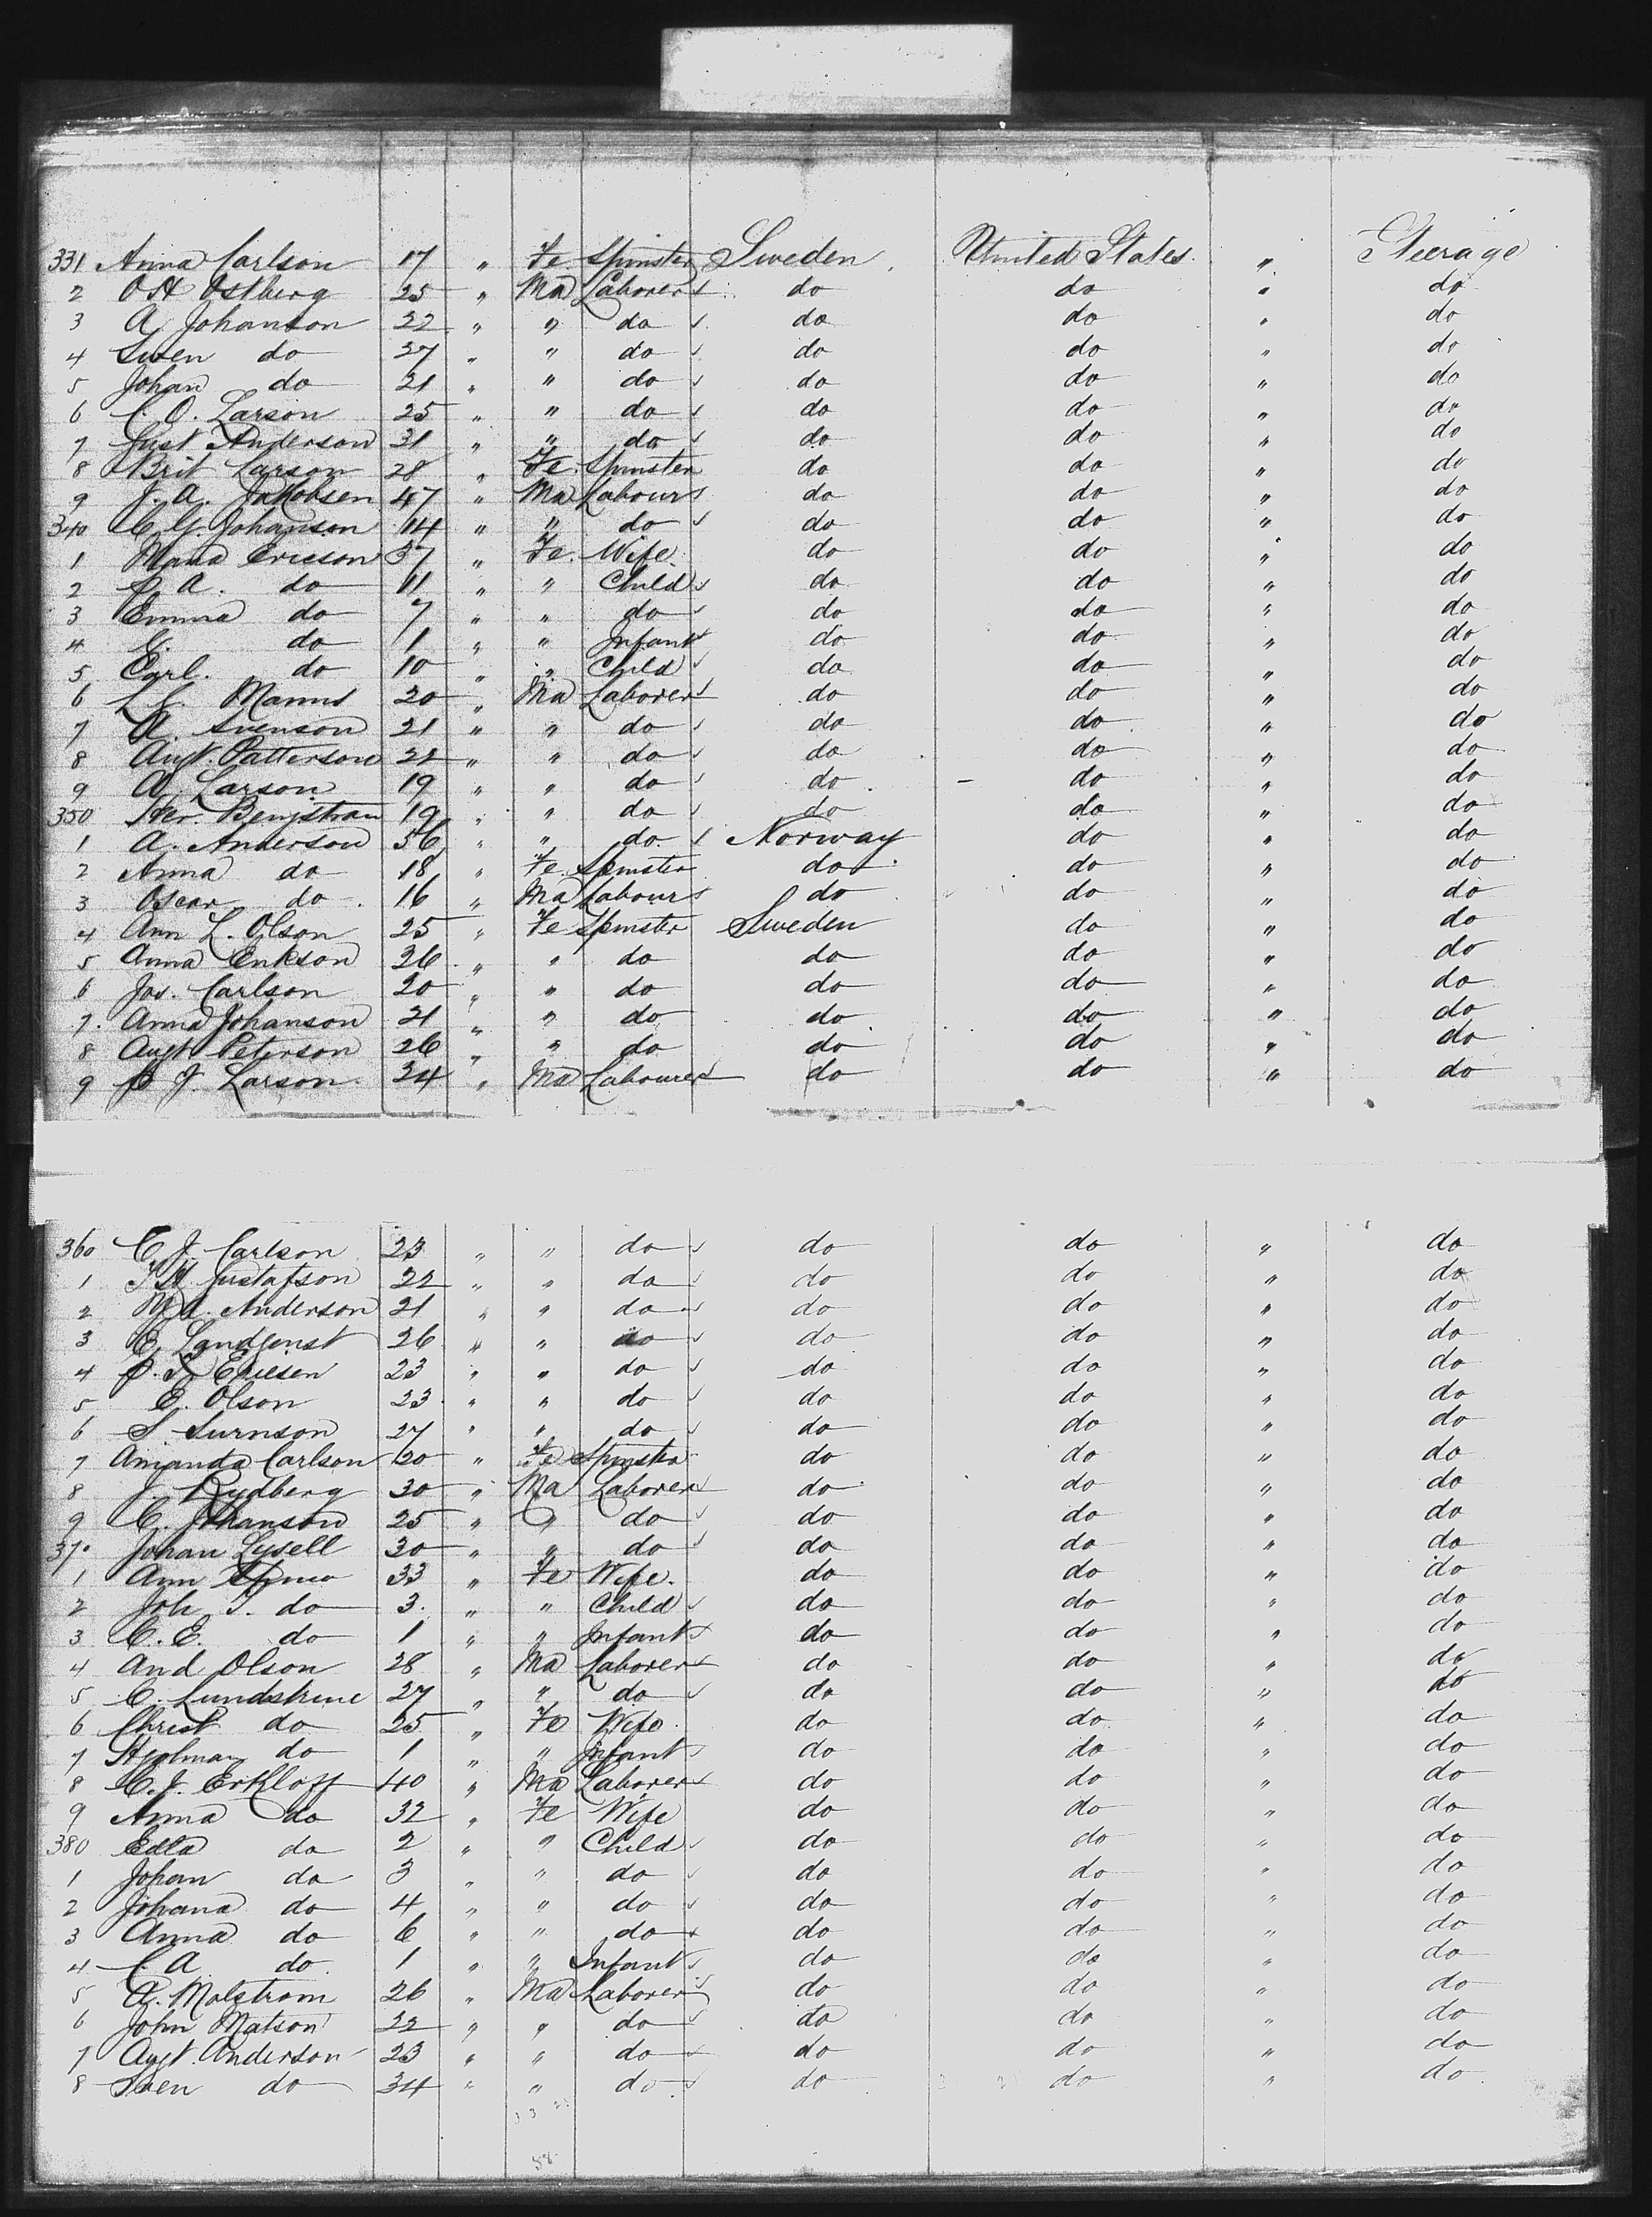 331 Anna Carlson 17 " Fe Spinster Sweden United States " Steerage
2 O H Ostberg 25 " Ma Laborer do do " do
3 A Johanson 22 " " do do do " do
4 Swen do 27 " " do do do " do
5 Johan do 21 " " do do do " do
6 C. O. Larson 25 " " do do do " do
7 Gust Anderson 31 " " do do do " do
8 Brit Larson 28 " Fe. Spinster do do " do
9 J. A. Jakobsen 47 " Ma Labour do do " do
340 C. G. Johanson 14 " " do do do " do
1 Maria Ericson 37 " Fe. Wife do do " do
2 A. do 11 " " Child do do " do
3 Emma do 7 " " do do do " do
4 E. do 1 " " Infant do do " do
5 Carl. do 10 " " Child do do " do
6 Manus 20 " Ma Laborer do do " do
7 A. Svenson 21 " " do do do " do
8 Augt. Patterson 22 " " do do do " do
9 A. Larson 19 " " do do do " do
350 Bengstran 19 " " do do do " do
1 A. Anderson 56 " " do. Norway do " do
2 Anna do 18 " Fe. Spinster do do " do
3 Oscar do 16 " Ma Labour do do " do
4 Ann L. Olson 25 " Fe Spinster Sweden do " do
5 Anna Erikson 26 " " do do do " do
6 Jos. Carlson 20 " " do do do " do
7. Anna Johanson 21 " " do do do " do
8 Augt Peterson 26 " " do do do " do
9 P J. Larson 34 " Ma Labourer do do " do
360 C. J. Carlson 23 " " do do do " do
1 Gustafson 22 " " do do do " do
2 Anderson 21 " " do do do " do
3 E. 26 " " do do do " do
4 P. 23 " " do do do " do
5 E. Olson 23 " " do do do " do
6 S Surnson 27 " " do do do " do
7 Amanda Carlson 20 " Fe Spinster do do " do
8 J. Rydberg 30 " Ma Laborer do do " do
9 C. Johanson 25 " " do do do " do
370 Johan Lysell 30 " " do do do " do
1 Ann 33 " Fe Wife. do do " do
2 Joh do 3. " " Child do do " do
3 C. E. do 1 " " Infant do do " do
4 And Olson 28 " Ma Laborer do do " do
5 C. 27 " " do do do " do
6 Christ do 25 " Fe Wife. do do " do
7 Hjalmar do 1 " " Infant do do " do
8 C. J. Erkloff 40 " Ma Laborer do do " do
9 Anna do 32 " Fe Wife do do " do
380 Edla do 2 " " Child do do " do
1 Johan do 3 " " do do do " do
2 Johana do 4 " " do do do " do
3 Anna do 6 " " do do do " do
4 C A. do. 1 " " Infant do do " do
5 A. Malstrom 26 " Ma Laborer do do " do
6 John Matson 22 " " do do do " do
7 Augt. Anderson 23 " " do do do " do
8 Sven do 34 " " do do do " do.